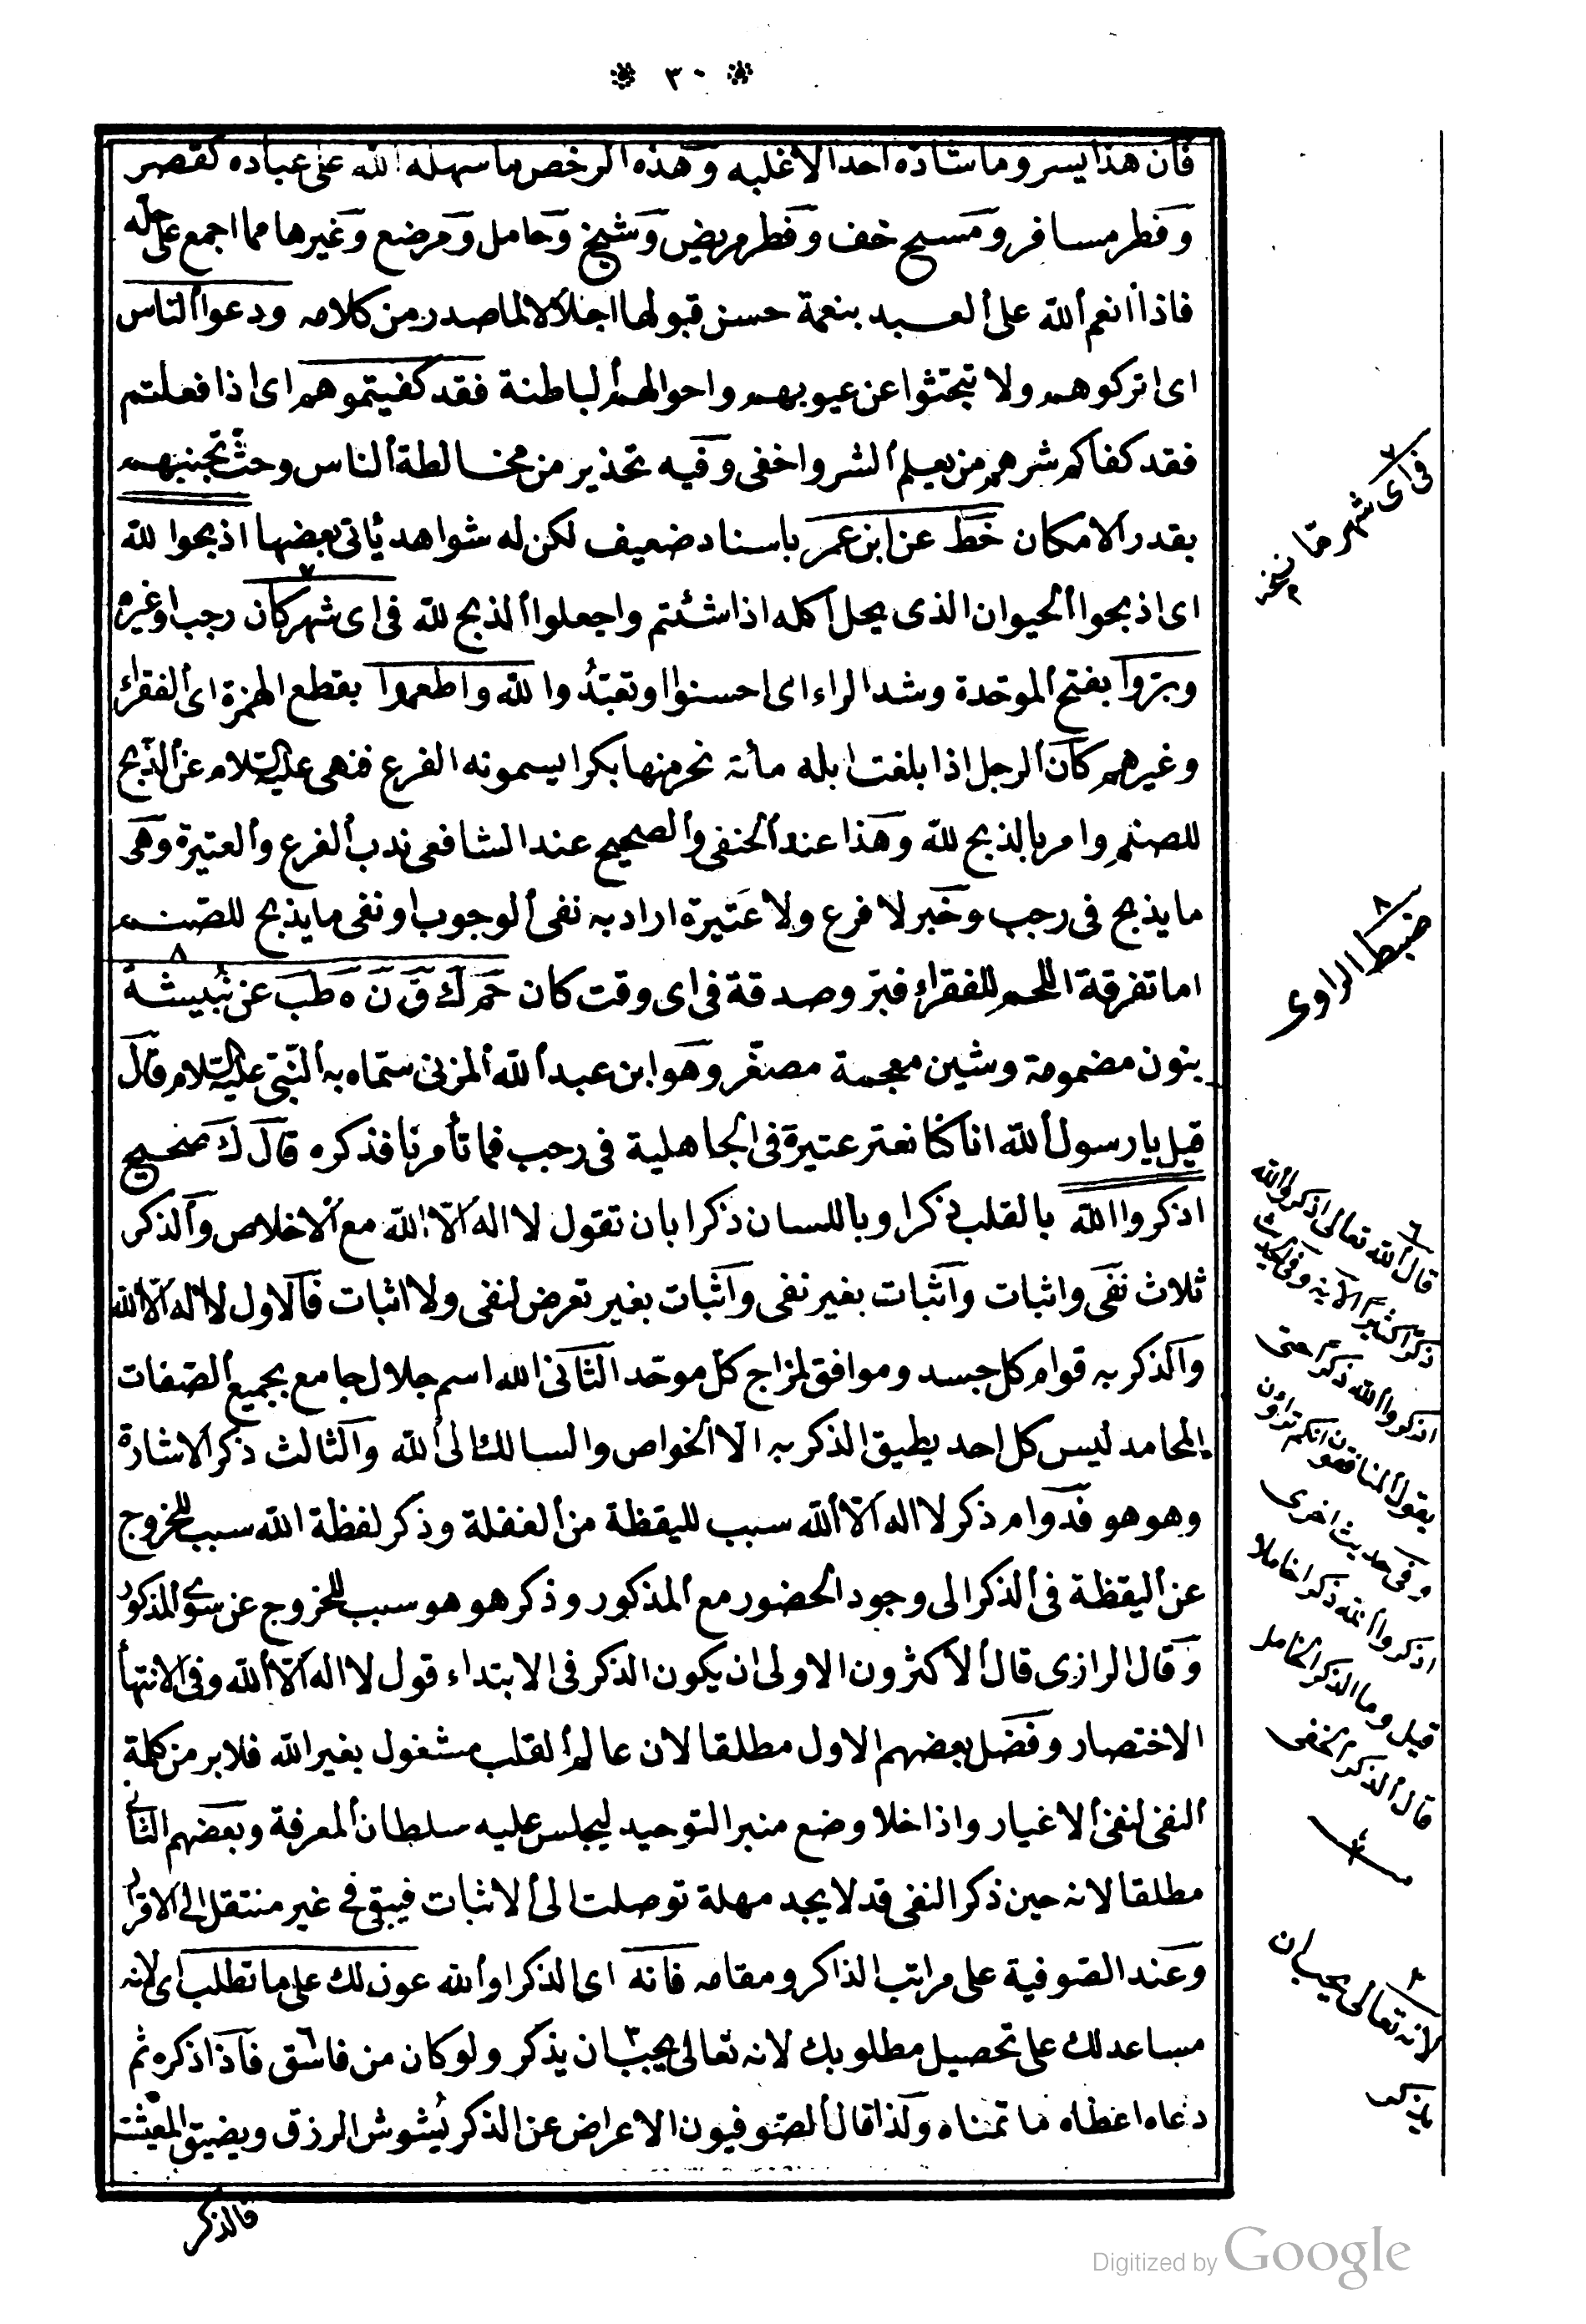 * ٣٠ *
فان هذا يسر وما شاده احد الا غلبه وهذه الرخص مما سهله الله على عباده كقصر
وفطر مسافر ومسح خف وفطر مريض وشيخ وحامل ومرضع وغيرها مما اجمع على حله
فاذا انعم الله على العبد بنعمة حسن قبولها اجلالا لما صدر من كلامه ودعوا الناس
اى اتركوهم ولا تبحثوا عن عيوبهم واحوالهم الباطنة فقد كفيتموهم اى اذا فعلتم
فقد كفاكم شرهم من يعلم السر واخفى وفيه تحذير من مخالطة الناس وحث تجنبهم
بقدر الامكان خط عن ابن عمر باسناد ضعيف لكن له شواهد يأتى بعضها اذبحوا لله
اى اذبحوا الحيوان الذى يحل اكله اذا شئتم واجعلوا الذبح لله فى اى شهر كان رجب او غيره
وبروا بفتح الموحدة وشد الراء اى احسنوا وتعبدوا لله واطعموا بقطع الهمزة اى الفقراء
وغيرهم كان الرجل اذا بلغت ابله مأته نحر منها بكرا يسمونه الفرع فنهى عليه السلام عن الذبح
للصنم وامر بالذبح لله وهذا عند الحنفى والصحيح عند الشافعى ندب الفرع والعتيرة وهى
ما يذبح فى رجب وخبر لا فرع ولا عتيرة اراد به نفى الوجوب او نفى ما يذبح للصنم
اما تفرقة اللحم للفقراء فبر وصدقة فى اى وقت كان حم ك ق ن ه طب عن نبيشة
بنون مضمومة وشين معجمة مصغر وهو ابن عبد الله المزنى سماه به النبى عليه السلام قال
قيل يا رسول الله انا كنا نعتر عتيرة فى الجاهلية فى رجب فما تأمرنا فذكره قال ك صحيح
اذكروا الله بالقلب ذكرا وباللسان ذكرا بان تقول لا اله الا الله مع الاخلاص والذكر
ثلاث نفى واثبات واثبات بغير نفى واثبات بغير تعرض لنفى ولا اثبات فالاول لا اله الا الله
والذكر به قوام كل جسد وموافق لمزاج كل موحد الثانى الله اسم جلال جامع بجميع الصفات
المحامد ليس كل احد يطيق الذكر به الا الخواص والسالك الى الله والثالث ذكر الاشارة
وهو هو فدوام ذكر لا اله الا الله سبب لليقظة من الغفلة وذكر لفظة الله سبب للخروج
عن اليقظة فى الذكر الى وجود الحضور مع المذكور وذكر هو هو سبب للخروج عن سوى المذكور
وقال الرازى قال الاكثرون الاولى ان يكون الذكر فى الابتداء قول لا اله الا الله وفى الانتها
الاختصار وفضل بعضهم الاول مطلقا لان عالم القلب مشغول بغير الله فلابر من كلمة
النفى لنفى الاغيار واذا خلا وضع منبر التوحيد ليجلس عليه سلطان المعرفة وبعضهم الثانى
مطلقا لانه حين ذكر النفى قد لا يجد مهلة توصلت الى الاثبات فيبقى فى غير منتقل الى الاقرار
وعند الصوفية على مراتب الذاكر ومقامه فانه اى الذكر او الله عون لك على ما تطلب اى لانه
مساعد لك على تحصيل مطلوبك لانه تعالى يحب ان يذكر ولو كان من فاسق فاذا ذكره ثم
دعاه اعطاه ما تمناه ولذا قال الصوفيون الاعراض عن الذكر يشوش الرزق ويضيق المعيشة
فالذكر
٧
فى اى شهر ما نسخه
٨
ضبط الراوى
٦
قال الله تعالى اذكروا الله
ذكرا كثيرا الآية وفى الحديث
اذكروا الله ذكرا حتى
يقول المنافقون انكم تراؤن
وفى حديث اخرى
اذكروا الله ذكرا خاملا
قيل وما الذكر الخامل
قال الذكر الخفى
لانه تعالى يحب ان
يذكر
Digitized by Google